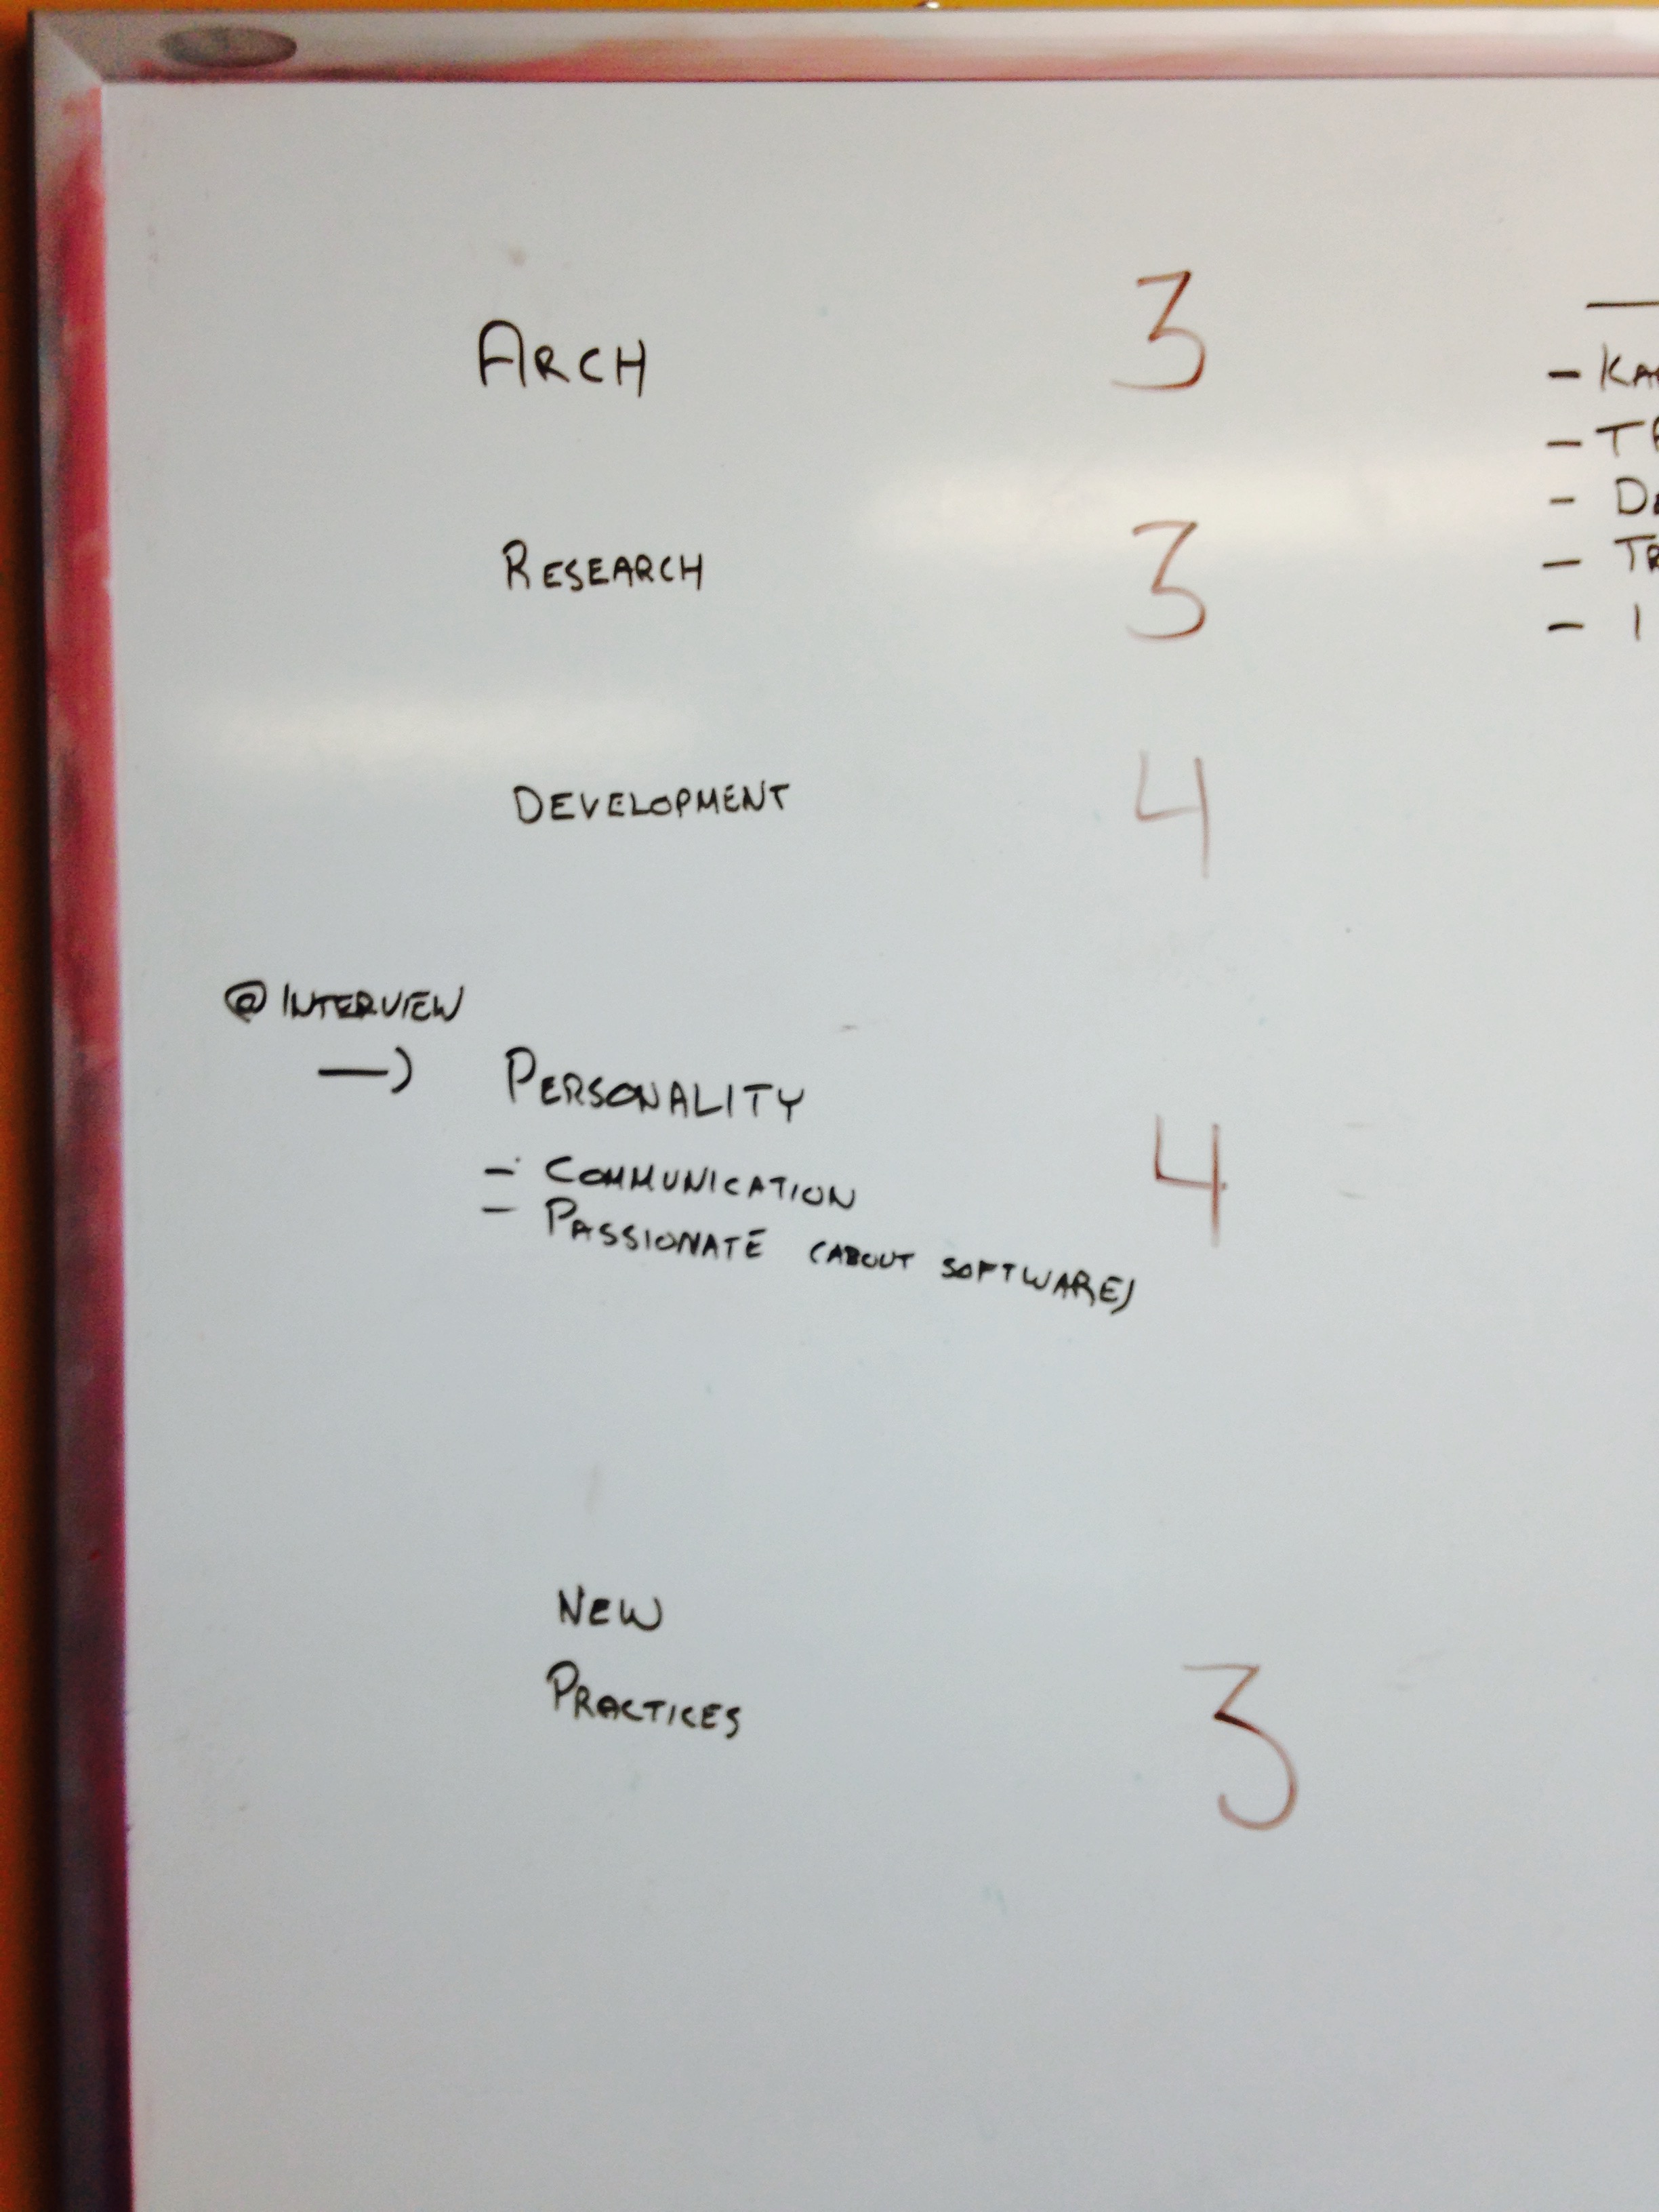 ARCH 3
RESEARCH 3
DEVELOPMENT 4
@ INTERVIEW
—) PERSONALITY 4
- COMMUNICATION
- PASSIONATE (ABOUT SOFTWARE)
NEW
PRACTICES 3